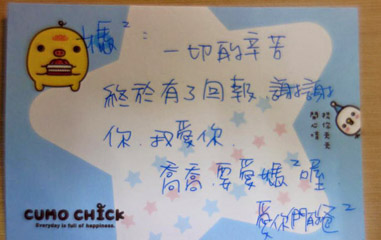 媽²：
一切的辛苦
終於有了回報 謝謝
你.我愛你.
喬喬.要愛媽²喔
愛你們的爸²
祝你天天
開心喔
CUMO CHICK
Everyday is full of happiness.